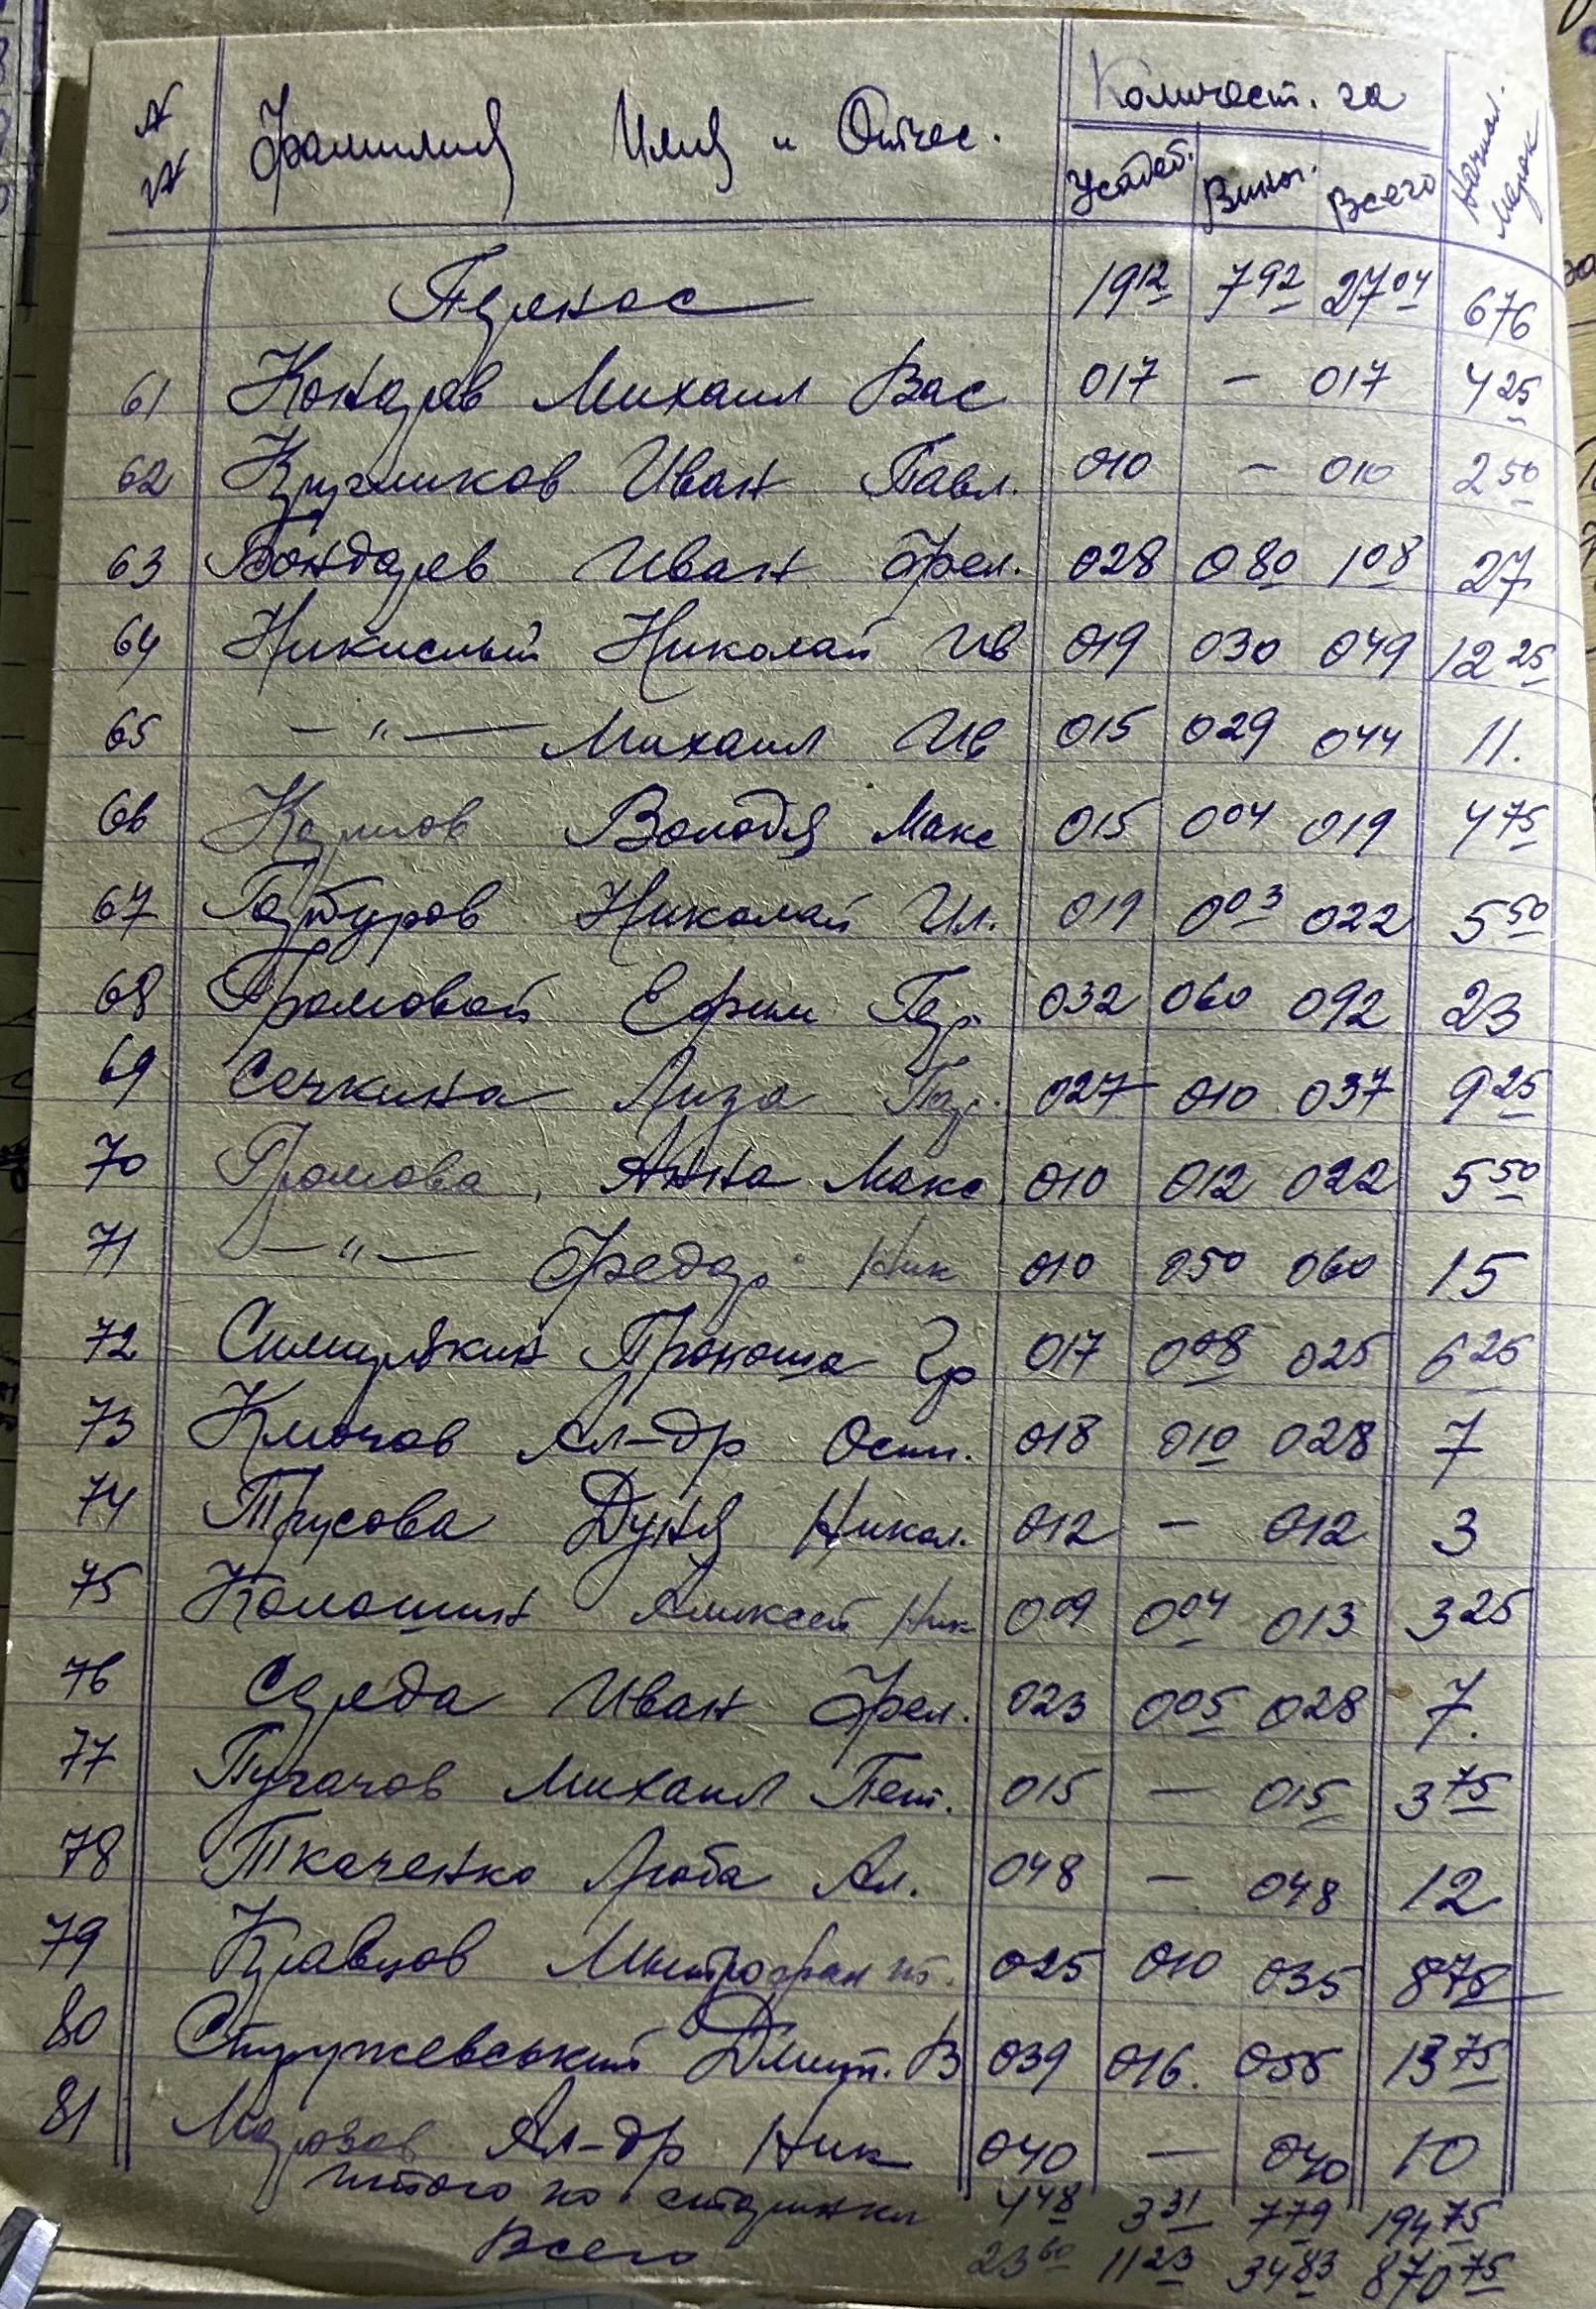 №№ Фамилия Имя и Отчес. Количест. га Начисл. марок
Усадеб. Виног. Всего
Перенос 19 12 7 92 27 04 676
61 Кондрев Михаил Вас 017 – 017 4 25
62 Кругликов Иван Павл. 010 – 010 2 50
63 Бондарев Иван Фил. 028 080 1 08 27
64 Никислый Николай Ив 019 030 049 12 25
65 – " – Михаил Ив 015 029 044 11.
66 Карпов Володя Макс 015 004 019 4 75
67 Гортуров Николай Ил. 019 003 022 5 50
68 Громовой Ефим Гар. 032 060 092 23
69 Сечкина Лиза Гр. 027 010 037 9 25
70 Громова Анна Макс 010 012 022 5 50
71 – " – Федор Ник 010 050 060 15
72 Симирякин Проноша Гр 017 008 025 6 25
73 Ключов Ал-др Осип. 018 010 028 7
74 Трусова Дуня Никол. 012 – 012 3
75 Колошин Аликсей Ник 009 004 013 3 25
76 Середа Иван Фил. 023 005 028 7.
77 Пугачов Михаил Пет. 015 – 015 3 75
78 Ткаченко Люба Ал. 048 – 048 12
79 Кравцов Митрофан 025 010 035 8 75
80 Стружевський Дмит. В 039 016. 055 13 75
81 Морозов Ал-др Ник 040 – 040 10
итого по странки 4 48 3 31 7 79 194 75
Всего 23 60 11 23 34 83 870 75